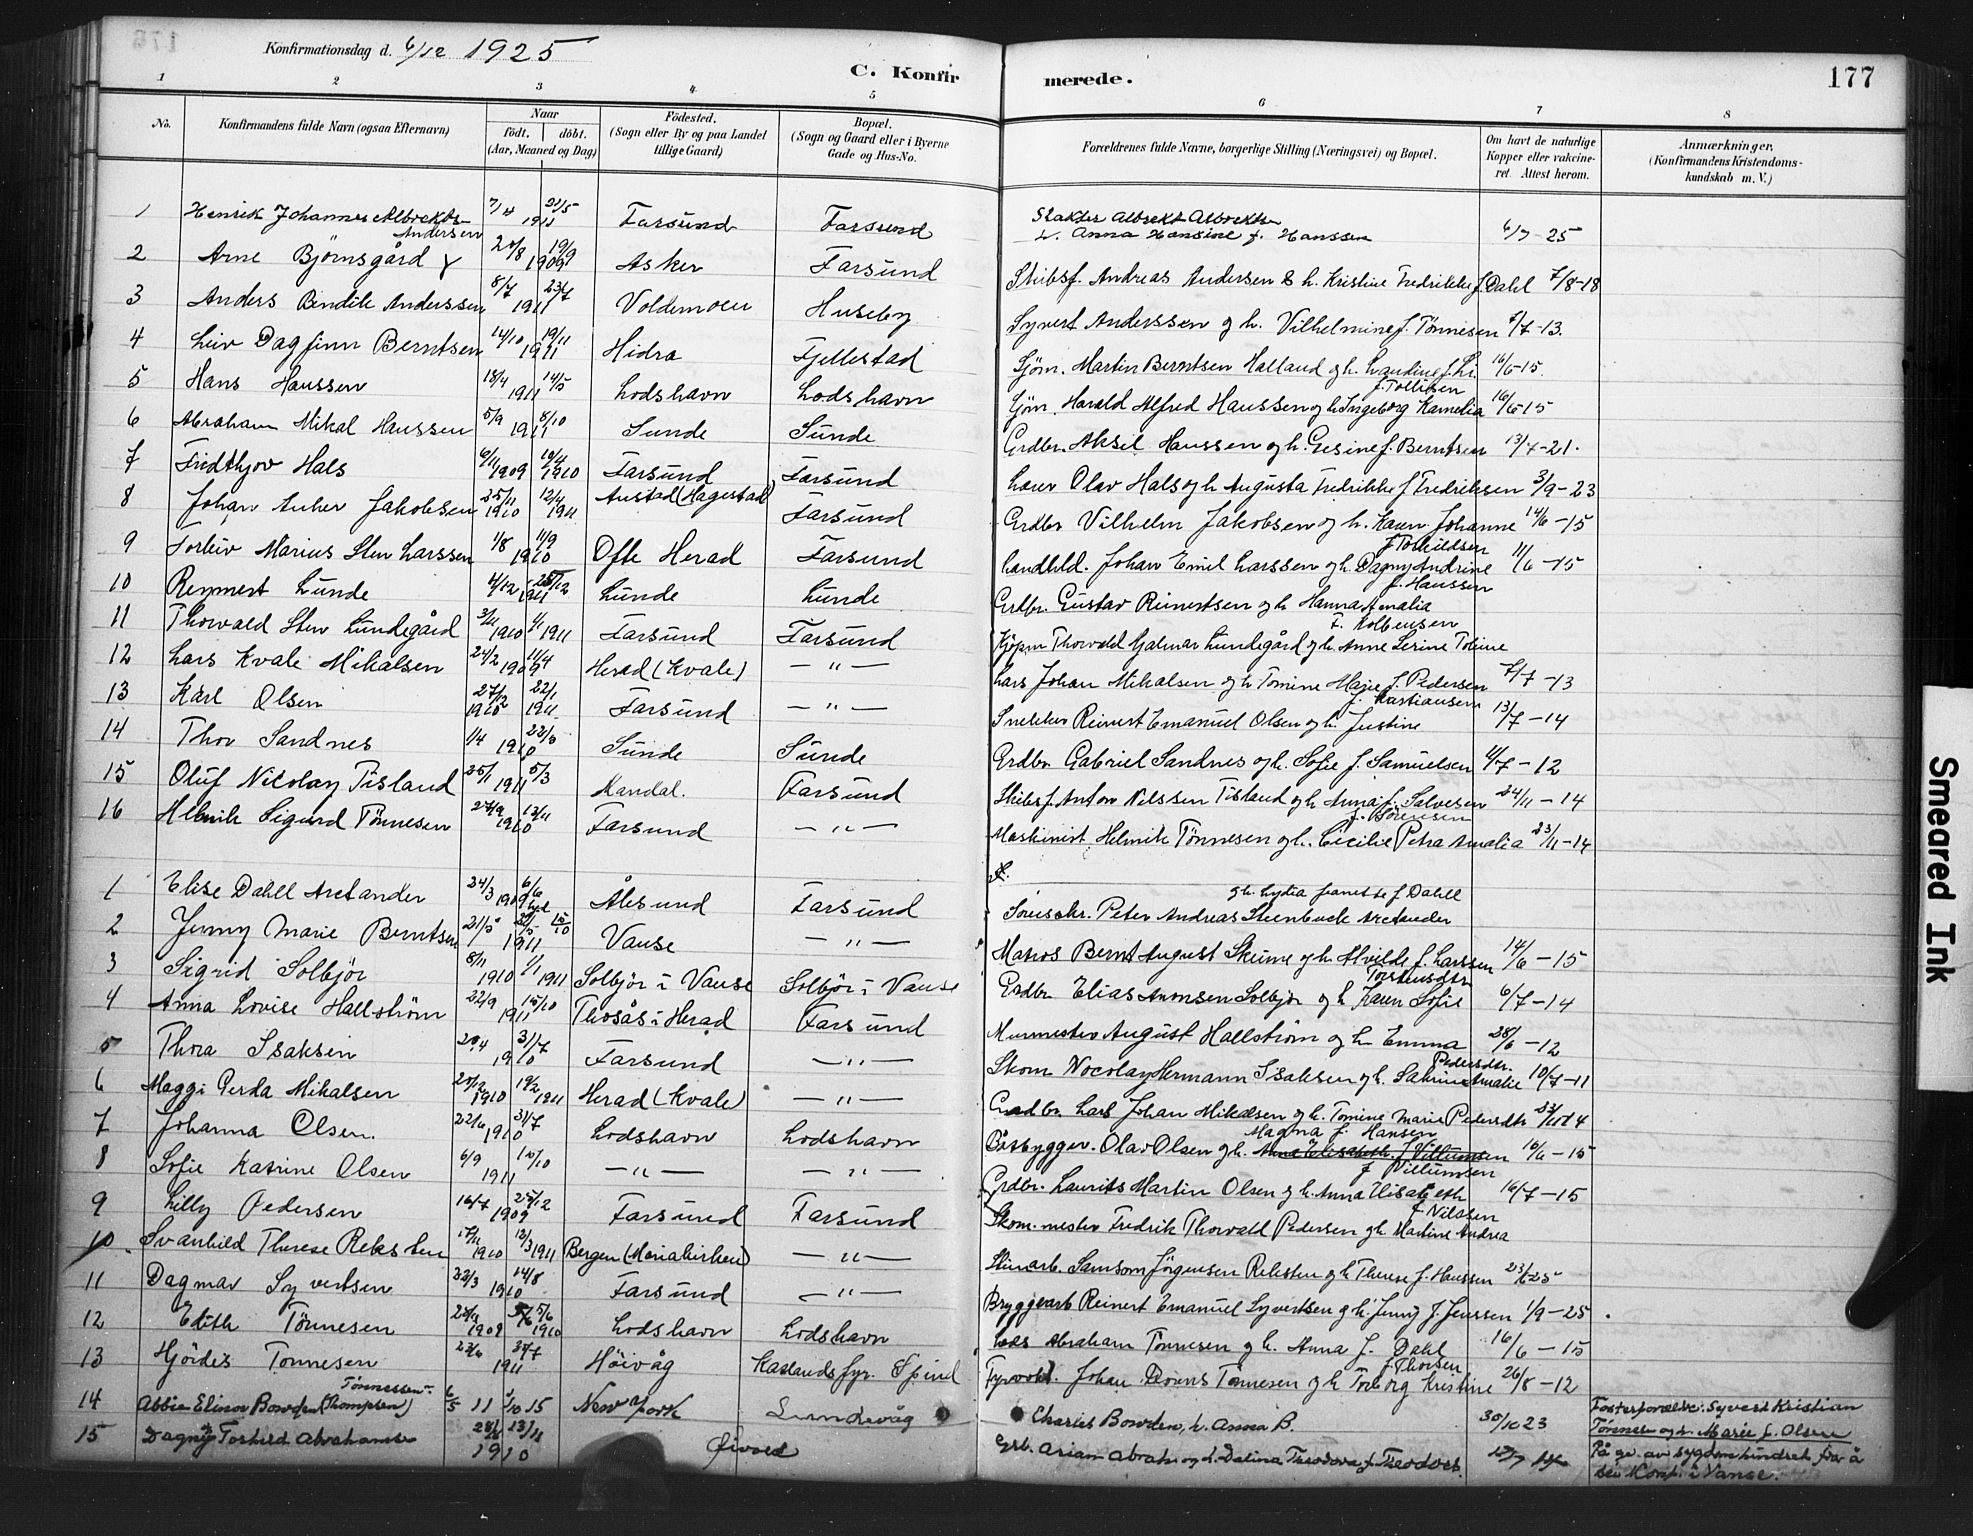 Konfirmationsdag d. 6/12 1925
C. Konfirmerede. 177
1 2 3 4 5 6 7 8
No. Konfirmandens fulde Navn (ogsaa Efternavn) Naar født. døbt. (Aar, Maaned og Dag) Fødested. (Sogn eller By og paa Landet tillige Gaard) Bopæl. (Sogn og Gaard eller i Byerne Gade og Hus-No. Forældrenes fulde Navne, borgerlige Stilling (Næringsvei) og Bopæl. Om havt de naturlige Kopper eller vakcineret. Attest herom. Anmærkninger. (Konfirmandens Kristendomskundskab m. V.)
1 Henrik Johannes Albrekts- Andersen 7/4 21/5 1911 Farsund Farsund Slakter Albrekt Albrektsen h. Anna Hansine f. Hanssen 6/7-25
2 Arne Bjørnsgård 20/8 19/9 1909 Asker Farsund Skibsf. Andreas Andersen & h. Kristine Fredrikke f. Dahl 7/8-18
3 Anders Bendik Anderssen 8/7 23/7 1911 Voldemoen Huseby Syvert Anderssen og h. Vilhelmine f. Tønnesen 5/7-13.
4 Leiv Dagfinn Berntsen 14/10 19/11 1911 Hidra Fjellestad Sjøm. Martin Berntsen Halland og h. 16/6-15.
5 Hans Hanssen 18/4 14/5 1911 Lodshavn Lodshavn Sjøm. Harald Alfred Hanssen og h. Ingeborg Kamelia f. Tollisen 16/6-15
6 Abraham Mikal Hanssen 5/9 8/10 1911 Sunde Sunde Grdbr. Aksel Hanssen og h. Gesine f. Berntsen 13/7-21.
7 Fridthjov Hals 6/11 1909 10/4 1910 Farsund Farsund Lærer Olav Hals og h. Augusta Fredrikke f. Fredriksen 3/9-23
8 Johan Anker Jakobsen 25/11 1910 12/4 1911 Austad (Hagestad) Farsund Grdbr Vilhelm Jakobsen og h. Karen Johanne f. Torkildsen 14/6-15
9 Torleiv Marius Sten Larssen 1/8 11/9 1910 Ofte Herad Farsund Landhld. Johan Emil Larssen og h. Dagny Andrine f. Hanssen 11/6-15
10 Reymert Lunde 4/12 25/12 1911 Lunde Lunde Grdbr. Gustav Reinertsen og h. Hanna Amalia f. Kolbensen
11 Thorvald Sten Lundegård 3/11 1910 1/1 1911 Farsund Farsund Kjøpm Thorvald Hjalmar Lundegård og h. Anne Serine Toline
12 Lars Kvale Mikalsen 24/2 11/4 1909 Herad (Kvale) — " — Lars Johan Mikalsen og h. Tomine Marie f. Pedersen 7/7-13
13 Karl Olsen 27/12 1910 22/1 1911 Farsund — " — Snekker Reinert Emanuel Olsen og h. Justine f. Kristiansen 13/7-14
14 Thor Sandnes 1/4 22/5 1910 Sunde Sunde Grdbr Gabriel Sandnes og h. Sofie f. Samuelsen 4/7-12
15 Oluf Nicolay Tisland 25/1 5/3 1911 Mandal. Farsund Skibsf. Anton Nilssen Tisland og h. Anna f. Salvesen 24/11-14
16 Helmik Sigurd Tønnesen 27/9 13/11 1910 Farsund — " — Maskinist Helmik Tønnesen og h. Cecilie Petra Amalia f. Sørensen 23/11-14
1 Elise Dahll Arctander 24/3 6/6 1909 Ålesund Farsund Peter Andreas Steenbuck Arctander og h. Lydia Jeanette f Dahll
2 Jenny Marie Berntsen 21/5 15/10 1911 Vanse — " — Matros Bernt August Skeime og h. Alvilde f. Larssen 14/6-15
3 Sigrid Solbjør 8/11 1910 1/1 1911 Solbjør i Vanse Solbjør i Vanse Grdbr. Elias Aronsen Solbjør og h. Karen Sofie Torstensdtr 6/7-14
4 Anna Lovise Hallstrøm 22/9 15/10 1911 Thosås i Herad Farsund Murmester August Hallstrøm og h. Emma 28/6-12
5 Thora Isaksen 20/4 31/7 1910 Farsund — " — Skom Nocolay Hermann Isaksen og h. Sakrine Amalie Pedersdtr. 10/7-11
6 Maggi Gerda Mikalsen 1910 19/2 1911 Herad (Kvale) — " — Grdbr. Lars Johan Mikalsen og h. Tomine Marie Pedersdtr
7 Johanna Olsen. 22/6 31/7 1910 Lodshavn Lodshavn Båtbygger. Olav Olsen og h. Magna f. Hansen 16/6-15
8 Sofie Katrine Olsen 6/9 15/10 1911 — " — — " — Grdbr. Laurits Martin Olsen og h. Anna Elisabeth f Villumsen 16/7-15
9 Lilly Pedersen 16/7 25/12 1909 Farsund Farsund Skom. mester Fredrik Thorvald Pedersen og h. Martine Andrea f. Nilssen
10 Svanhild Therese Reksten 17/11 1910 12/3 1911 Bergen (Mariakirken) — " — Stinarb. Samson Jørgensen Reksten og h. Therese f. Hanssen 23/6 25
11 Dagmar Syvertsen 22/3 14/8 1910 Farsund — " — Bryggearb Reinert Emanuel Syvertsen og h. Jenny f. Jenssen 1/9-25
12 Edith Tønnesen 1909 5/6 1910 Lodshavn Lodshavn Lods Abraham Tønnesen og h. Anna f. Dahl 16/6-15
13 Hjördis Tønnesen 23/6 1911 Høivåg Katlands fyr. Spind Fyrvokt. Johan Tønnesen og h. Torborg Kristine f Thorsen 26/8-12
14 Abbie Elinor Bowden (Thompsen) Tønnessen 6/5 11 15 New York Lundevåg Charles Bowden, h. Anna B. 30/10 23 Fosterforældre: Syvert Kristian Tønnesen og h. Marie f. Olsen
15 Dagny Torhild Abrahamsen 28/6 13/11 1910 Øivold Grb. Arian Abrah. og h. Dalina Theodora f. Theodors. På gr. av sygdom hindret fra å bli Konf. i Vanse.
Smeared Ink